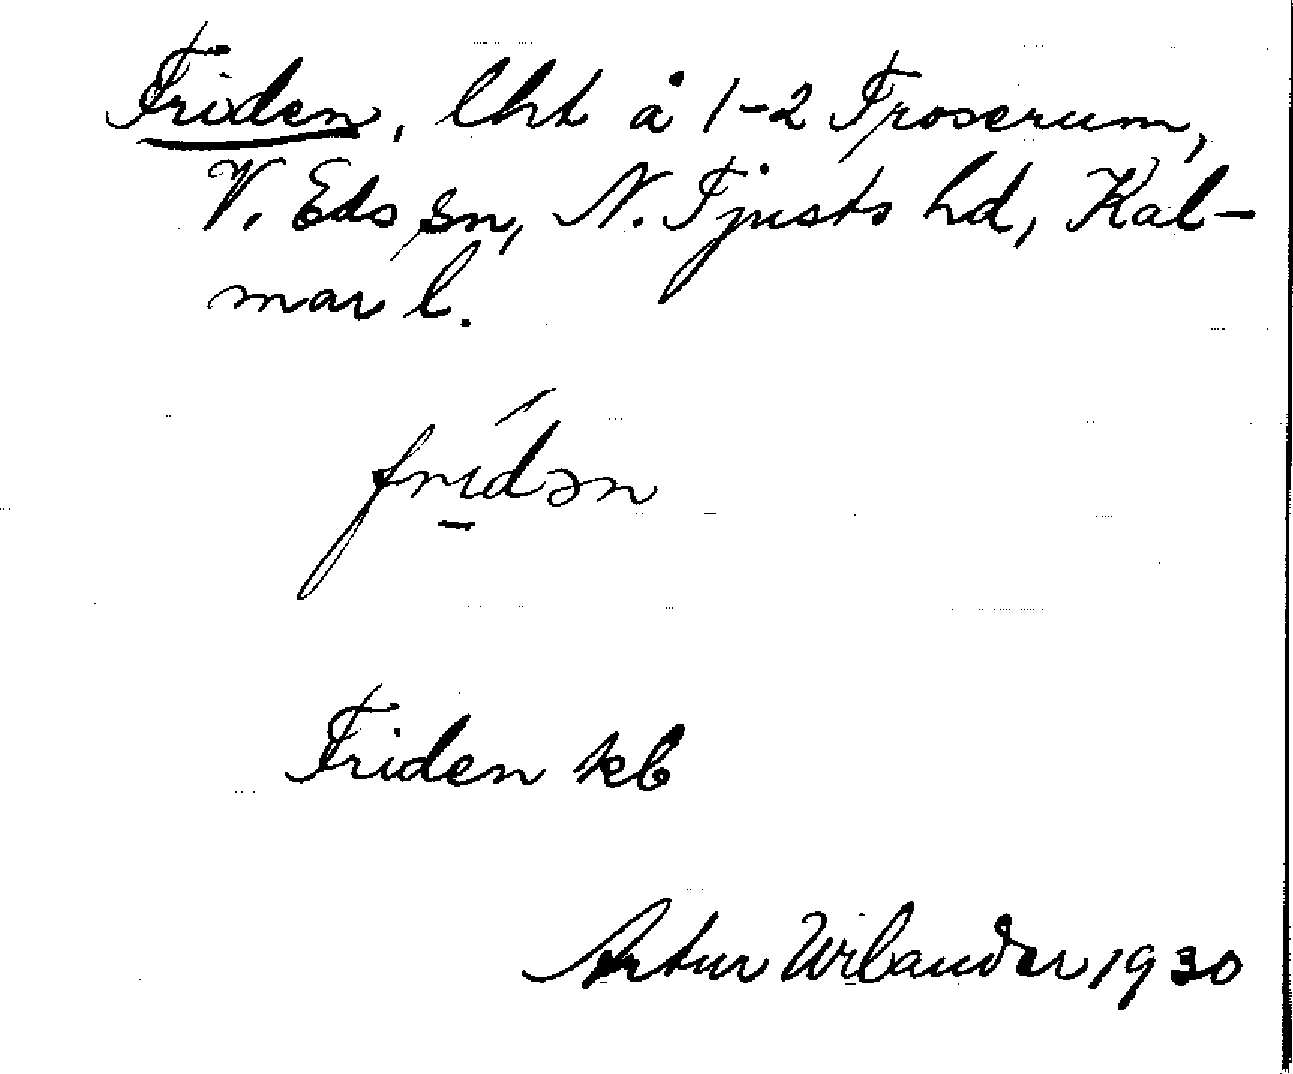 Friden, lht å 1-2 Froserum,
V. Eds sn, N. Tjusts hd, Kal-
mar l.
frídən
Friden kb
Artur Wilander 1930